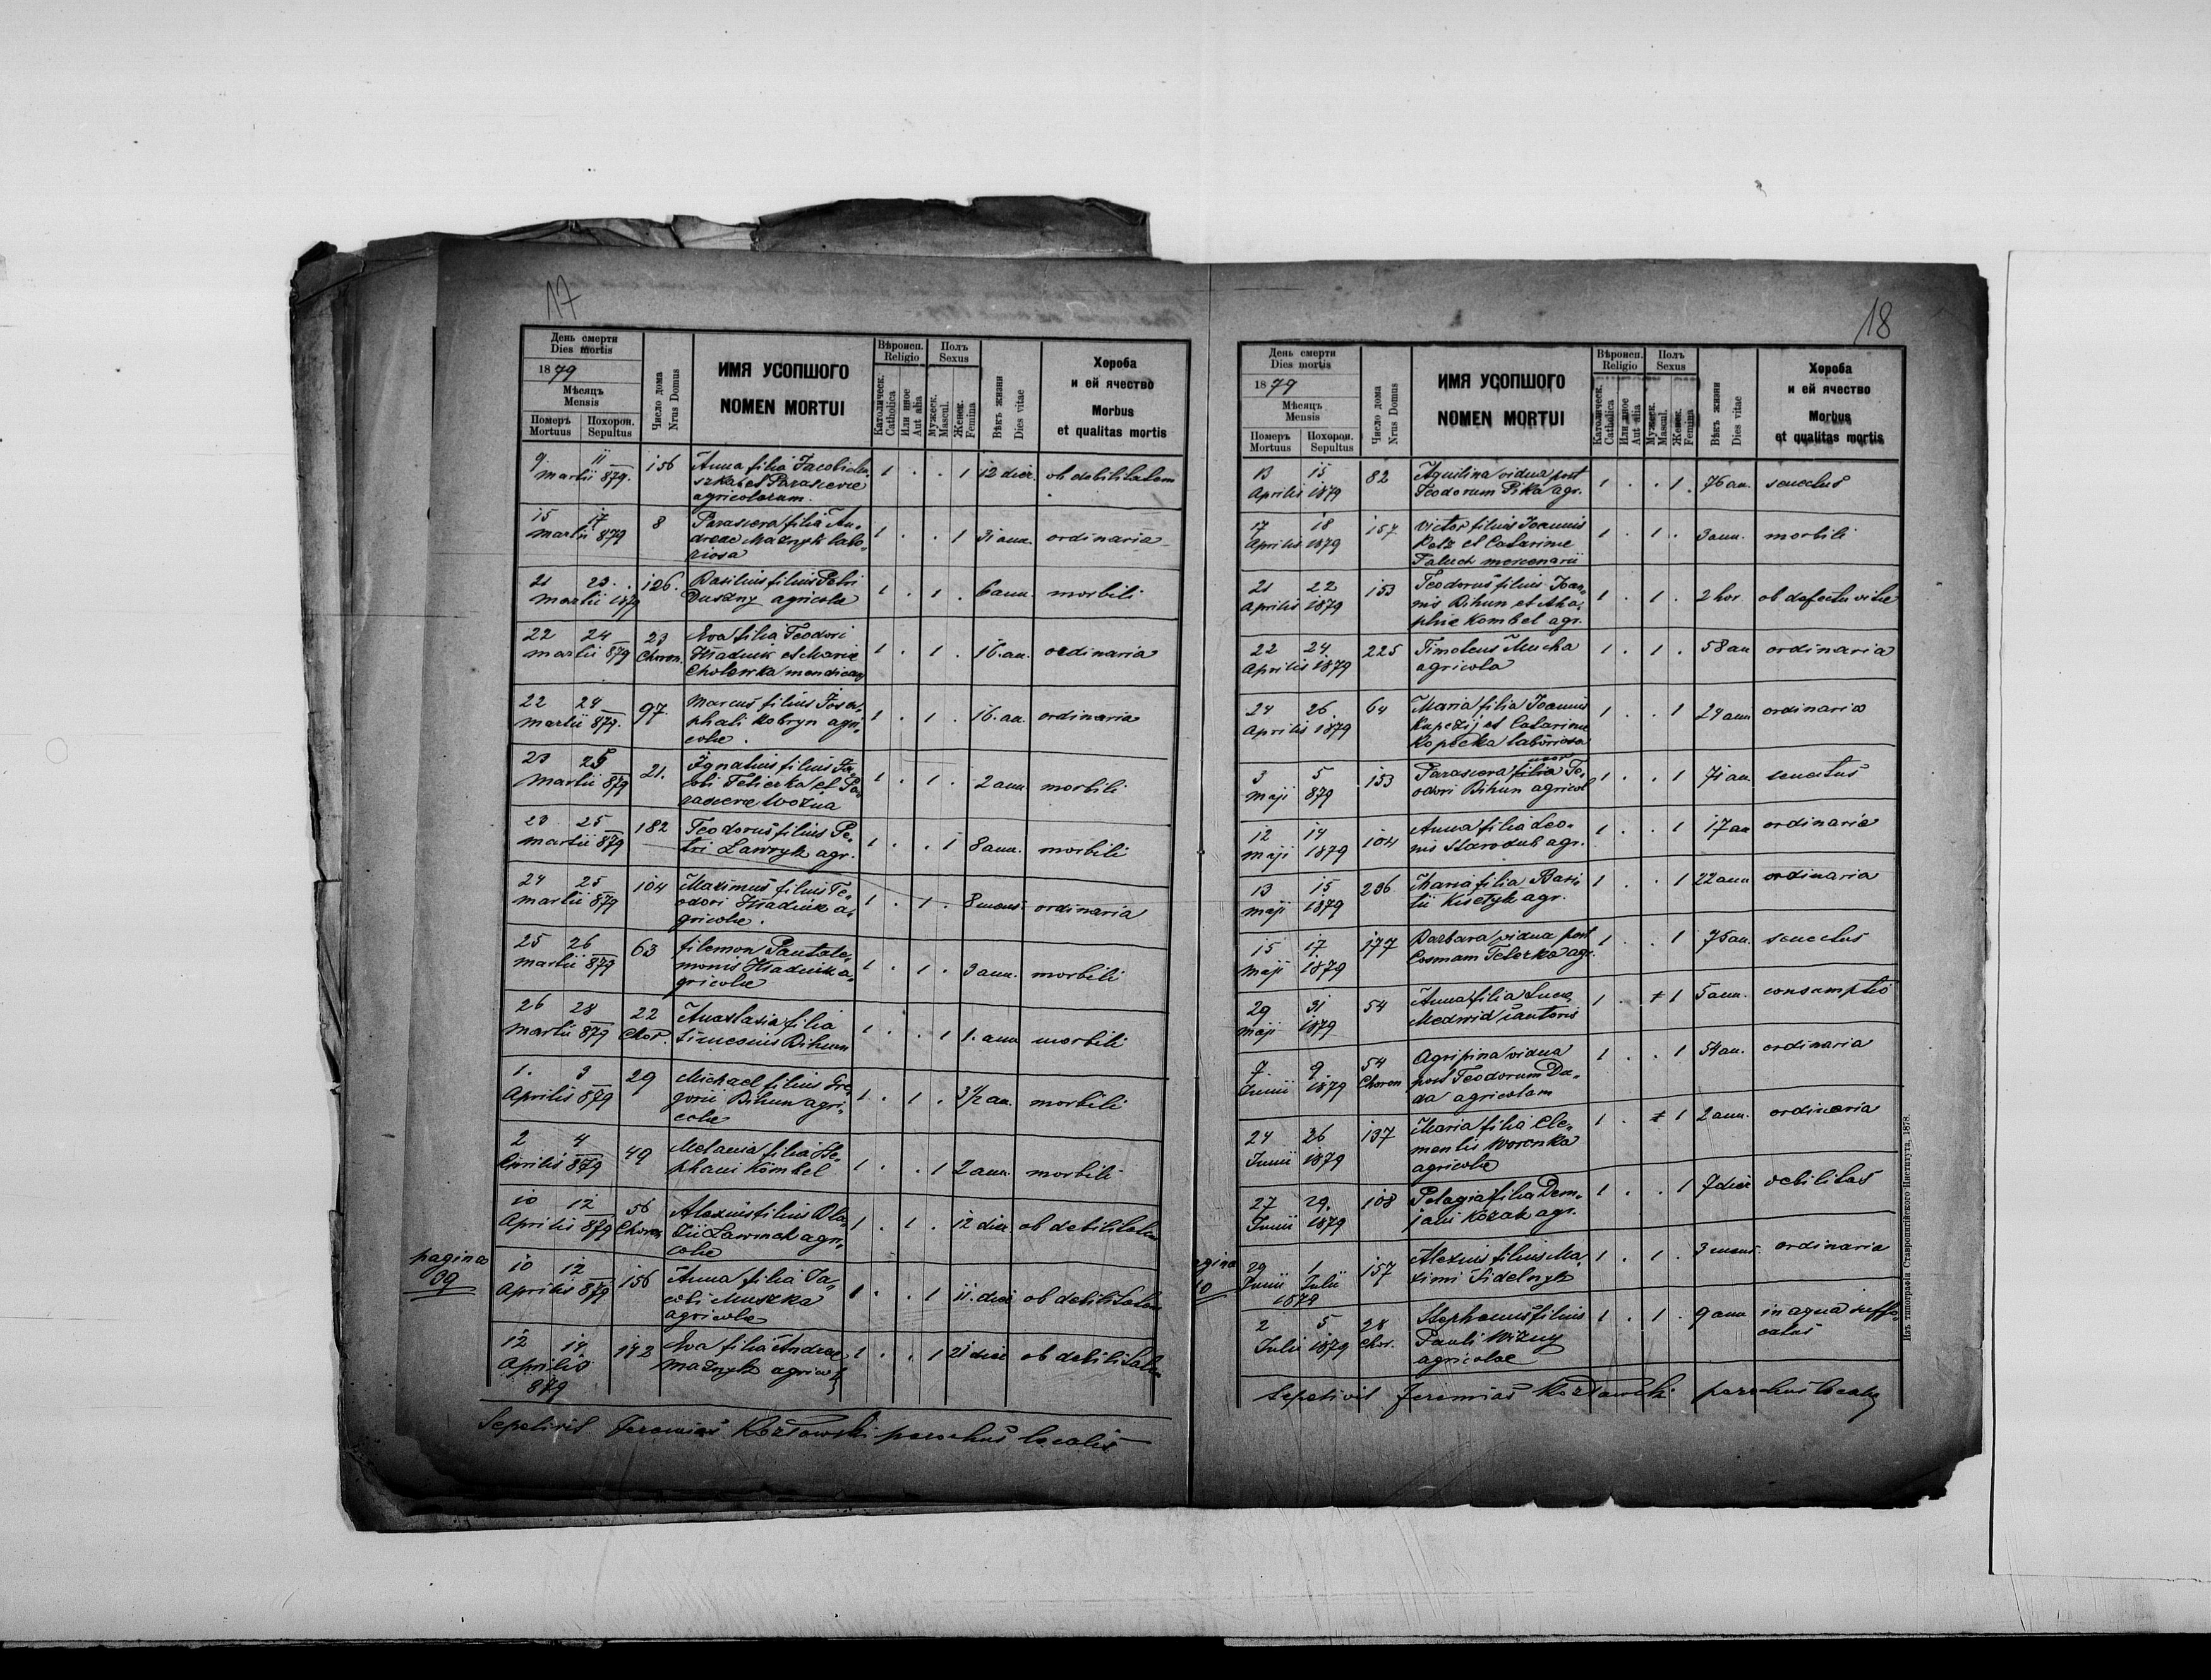 17
День смерти
Dies mortis
1879
Мѣсяцъ
Mensis
Померъ Похорон.
Mortuus Sepultus
Число дома
Nrus Domus
ИМЯ УСОПШОГО
NOMEN MORTUI
Вѣроисп.
Religio
Католическ.
Catholica
Или иное
Aut alia
Полъ
Sexus
Мужеск.
Mascul.
Женск.
Femina
Вѣкъ жизни
Dies vitae
Хороба
и ей ячество
Morbus
et qualitas mortis
9 11 156 Anna filia Jacobi
martii 879. szka et Parasceviae 1 . . 1 12 dier. ob debilitatem
agricolarum.
15 17 8 Parasceva filia An-
martii 879 dreae Maznyk labo- 1 . . 1 31 ann. ordinaria
riosa
21 23. 126. Basilius filius Petri
martii 1879 Duszny agricolae 1 . 1 . 6 ann. morbili
22 24 23 Eva filia Teodori
martii 879 Choron. Hładnik et Mariae 1 . 1 . 16. an. ordinaria
Cholewka
22 24 97. Marcus filius Josa-
martii 879. phati Kobryn agri- 1 . 1 . 16. an. ordinaria
colae.
23 25 21. Ignatius filius Ja-
martii 879 cobi et Pa- 1 . 1 . 2 ann morbili
rasceviae Woźna
23 25 182 Teodorus filius Pe-
martii 879 tri Ławryk agr. 1 . . 1 8 ann. morbili
24 25 104 Maximus filius Te-
martii 879 odori Hładnik a- 1 . 1 . 8 mens. ordinaria
gricolae.
25 26 63 filemon Pantale-
martii 879 monis Hładnik a- 1 . 1 . 3 ann. morbili
gricolae
26 28 22 Anastasia filia
martii 879 Chor. Simeonis Bihun 1 . . 1 1. ann morbili
1. 3 29 Michael filius Gre-
Aprilis 879 gorii Bihun agri- 1 . 1 . 3 1/2 an. morbili
colae
2 4 49 Melania filia Ste-
Aprilis 879 phani Kombel 1 . . 1 2 ann. morbili
10 12 56 Alexius filius Bla-
Aprilis 879 Choron. zii agri- 1 . 1 . 12 dier ob debilitatem
colae
pagina
09
10 12 156 Anna filia Ja-
Aprilis 879 cobi Muszka 1 . . 1 11. dier ob debilitatem
agricolae
12 14 142 Eva filia Andreae
Aprilis Maznyk agricol 1 . . 1 21 dier ob debilitatem
879
Sepelivit Jeremias Kozłowski parochus localis
18
День смерти
Dies mortis
1879
Мѣсяцъ
Mensis
Померъ Похорон.
Mortuus Sepultus
Число дома
Nrus Domus
ИМЯ УСОПШОГО
NOMEN MORTUI
Вѣроисп.
Religio
Католическ.
Catholica
Или иное
Aut alia
Полъ
Sexus
Мужеск.
Mascul.
Женск.
Femina
Вѣкъ жизни
Dies vitae
Хороба
и ей ячество
Morbus
et qualitas mortis
13 15 82 Aquilina vidua post
Aprilis 1879 Teodorum Pika agr. 1 . . 1 . 76 an. senectus
17 18 157 Victor filius Joannis
Aprilis 1879 et Catarinae 1 . 1 . 3 ann. morbili
Paluch mercenarii
21 22 153 Teodorus filius Joan-
Aprilis 1879 nis Bihun et Aha- 1 . 1 . 2 hor. ob defectu vitae
phiae Kombel agr.
22 24 225 Timoteus Mucha 1 . 1 . 58 an ordinaria
Aprilis 1879 agricola
24 26 64 Maria filia Joannis
Aprilis 1879 et Catarinae 1 . . 1 24 ann ordinaria
Kopecka laboriosa
uxor
3 5 153 Parasceva filia Te-
maji 879 odori Bihun agricol 1 . . 1 71 an senectus
12 14 104 Anna filia Leo-
maji 1879 nis Starodub agr. 1 . . 1 17 an ordinaria
13 15 236 Maria filia Basi-
maji 1879 lii Kisełyk agr. 1 . . 1 22 ann ordinaria
15 17 177 Barbara vidua post
maji 1879 Cosmam agr. 1 . . 1 75 an. senectus
29 31 54 Anna filia Lucae
maji 1879 Medwid cantoris 1 . 1 5 ann. consumptio
7. 9. 54 Agripina vidua
Junii 1879 Choron post Teodorum Du- 1 . . 1 54 an. ordinaria
da agricolam
24 26 137 Maria filia Cle-
Junii 1879 mentis Woronka 1 . 1 2 ann. ordinaria
agricolae
27 29. 108 Pelagia filia Dem-
Junii 1879 jani Kozak agr. 1 . . 1 7 dier debilitas
agina
10
29 1 157 Alexius filius Ma-
Junii Julii ximi Sidelnyk 1 . 1 . 3 mens. ordinaria
1879
2 5 28 Stephanus filius
Julii 1879 Chor. Pauli Wizny 1 . 1 . 9 ann in aqua suffo-
agricolae catus
Sepelivit Jeremias Kozłowski parochus localis
Изъ типографіи Ставропигійского Института, 1878.